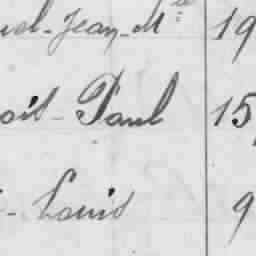 Jean-Mie 19
oit - Paul 15
- Louis 9